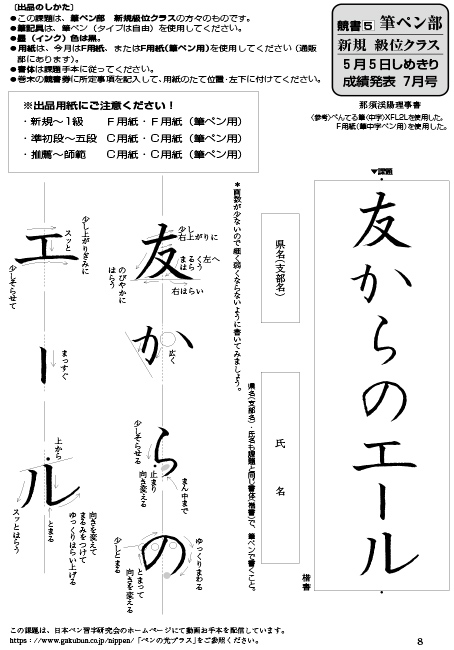 〔出品のしかた〕
●この課題は、筆ペン部　新規級位クラスの方々のものです。
●筆記具は、筆ペン（タイプは自由）を使用してください。
●墨（インク）色は黒。
●用紙は、今月はF用紙、またはF用紙（筆ペン用）を使用してください（通販部にあります）。
●書体は課題手本に従ってください。
●巻末の競書券に所定事項を記入して、用紙のたて位置・左下に付けてください。
競書5 筆ペン部
新規 級位クラス
5月5日しめきり
成績発表 7月号
那須渓陽理事書
〈参考〉ぺんてる筆〈中字〉XFL2Lを使用した。
F用紙（筆中字ペン用）を使用した。
※出品用紙にご注意ください！
・新規～1級　F用紙・F用紙（筆ペン用）
・準初段～五段　C用紙・C用紙（筆ペン用）
・推薦～師範　C用紙・C用紙（筆ペン用）
▼課題
友からのエール
楷書
県名（支部名）
氏名
県名（支部名）・氏名も課題と同じ書体（楷書）で、筆ペンで書くこと。
＊画数が少ないので細く弱くならないように書いてみましょう。
友
少し右上がりに
まるく左へはらう
のびやかにはらう
右はらい
か
広く
ら
少しそらせる
止まり向き変える
まん中まで
の
ゆっくりまわる
少しとまる
とまって向きを変える
エ
少し上がりぎみに
スッと
少しそらせて
ー
まっすぐ
ル
上から
スッとはらう
とまる
向きを変えてまるみをつけてゆっくりはらい上げる
この課題は、日本ペン習字研究会のホームページにて動画お手本を配信しています。
https://www.gakubun.co.jp/nippen/「ペンの光プラス」をご参照ください。
8